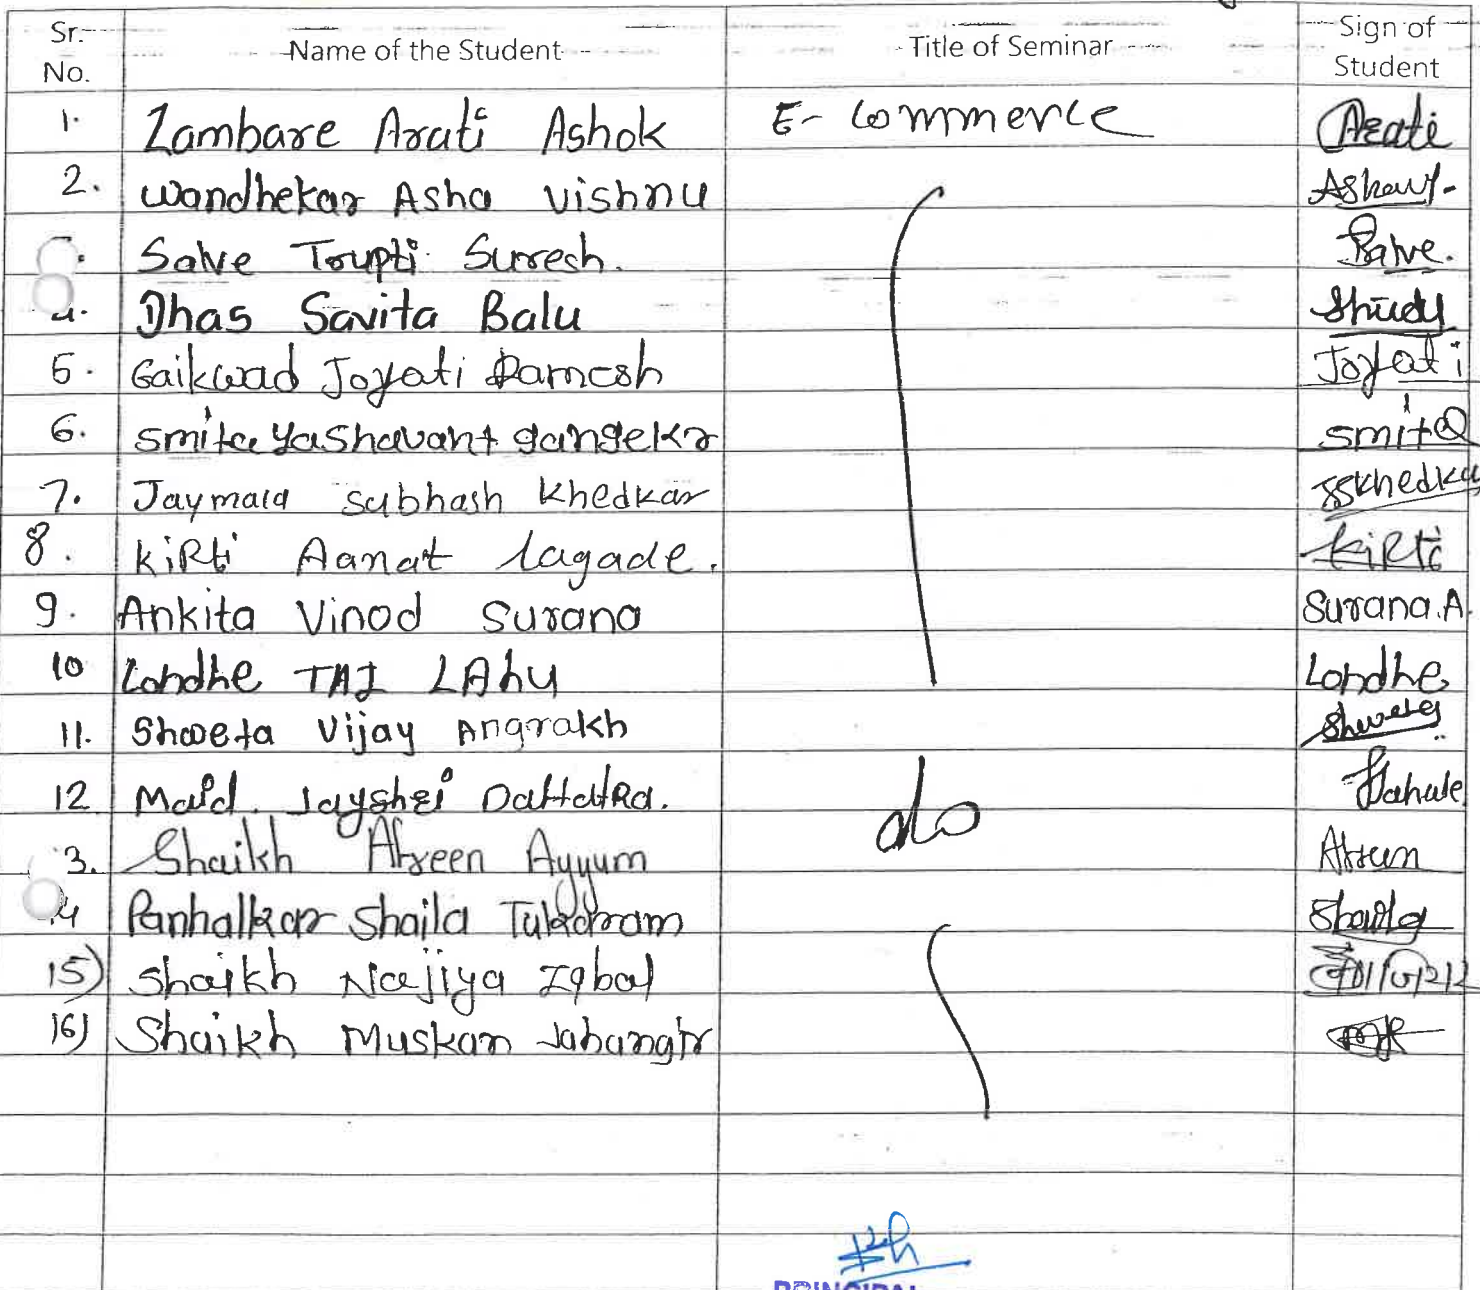 Sr. No. Name of the Student Title of Seminar Sign of Student
1. Zambare Arati Ashok E- Commerce Arati
2. Wandhekar Asha Vishnu
Salve Trupti Suresh. Salve.
4. Dhas Savita Balu
5. Gaikwad Joyati Ramesh Joyati
6. Smita Yashavant gangekr Smita
7. Jaymala Subhash Khedkar JSKhedkar
8. KiRti Aanat Lagade. KiRti
9. Ankita Vinod Surana Surana.A.
10 Londhe TAI LAhu Londhe
11. Shweta Vijay Angrakh Shweta
12 Maid. Jayshri Dattatra. do
3. Shaikh Afreen Ayyum Afreen
14 Panhalkar Shaila Tukaram Shaila
15) Shaikh Najiya Iqbal
16) Shaikh Muskan Jahangir
PRINCIPAL